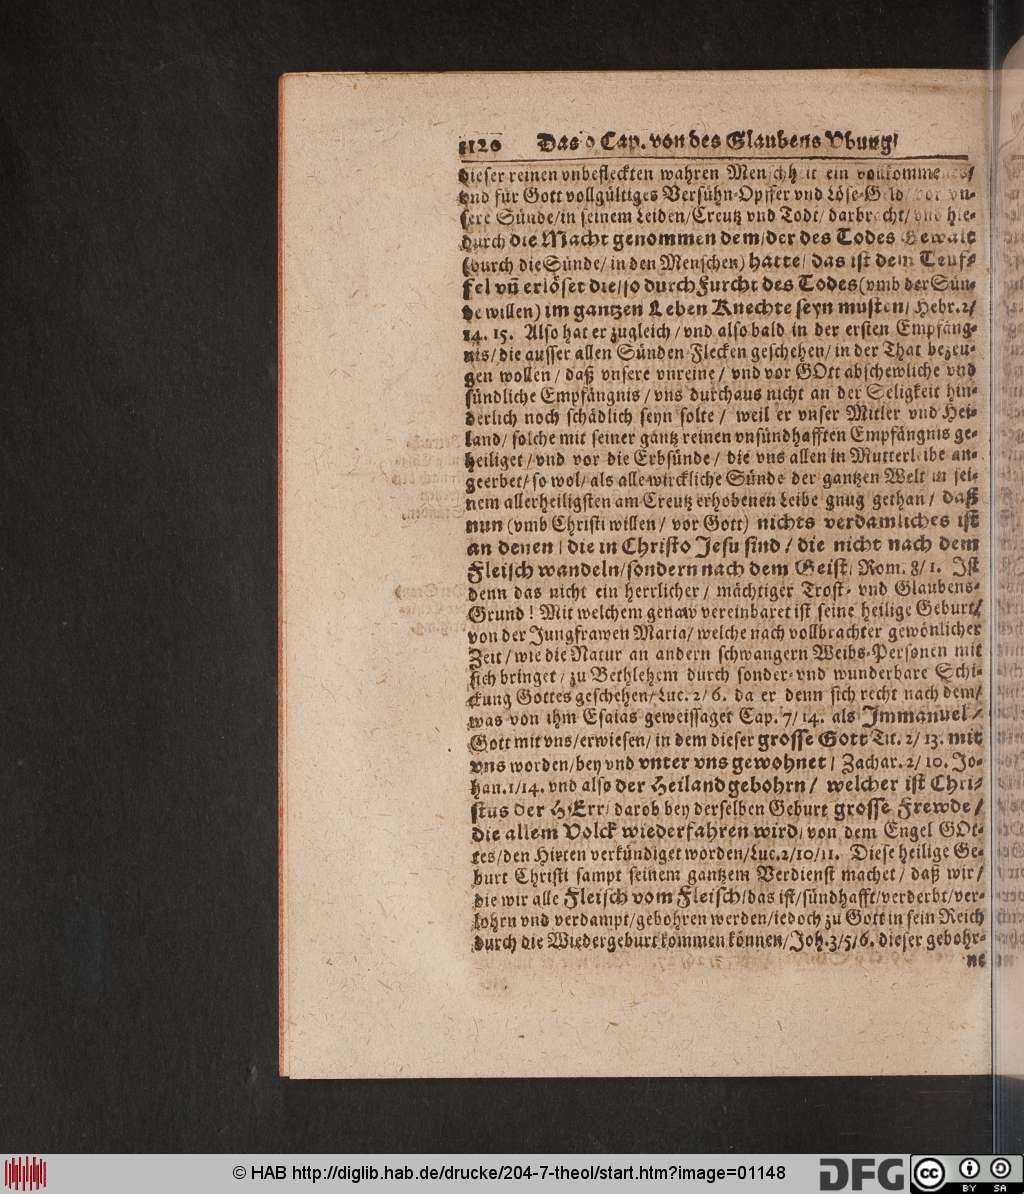 1120 Das 9 Cap. von des Glaubens Vbung/
dieser reinen vnbefleckten wahren Menschheit ein vollkommenes/
vnd für Gott vollgültiges Versühn-Opffer vnd Löse-Geld/ vor vn-
sere Sünde/in seinem Leiden/Creutz vnd Todt/ darbracht/ vnd hie-
durch die Macht genommen dem/der des Todes Gewalt
(durch die Sünde/ in den Menschen) hatte/ das ist dem Teuf-
fel vñ erlöset die/so durch Furcht des Todes (vmb der Sün-
de willen) im gantzen Leben Knechte seyn musten/ Hebr. 2/
14. 15. Also hat er zugleich/ vnd also bald in der ersten Empfäng-
nis/ die ausser allen Sünden-Flecken geschehen/ in der That bezeu-
gen wollen/ daß vnsere vnreine/ vnd vor GOtt abschewliche vnd
sündliche Empfängnis/ vns durchaus nicht an der Seligkeit hin-
derlich noch schädlich seyn solte/ weil er vnser Mitler vnd Hei-
land/ solche mit seiner gantz reinen vnsündhafften Empfängnis ge-
heiliget/ vnd vor die Erbsünde/ die vns allen in Mutterleibe an-
geerbet/ so wol/ als alle wirckliche Sünde der gantzen Welt in sei-
nem allerheiligsten am Creutz erhobenen Leibe gnug gethan/ daß
nun (vmb Christi willen/ vor Gott) nichts verdamliches ist
an denen/ die in Christo Jesu sind/ die nicht nach dem
Fleisch wandeln/sondern nach dem Geist/ Rom. 8/ 1. Ist
denn das nicht ein herrlicher/ mächtiger Trost- vnd Glaubens-
Grund! Mit welchem genaw vereinbaret ist seine heilige Geburt/
von der Jungfrawen Maria/ welche nach vollbrachter gewönlicher
Zeit/ wie die Natur an andern schwangern Weibs-Personen mit
sich bringet/ zu Bethlehem durch sonder- vnd wunderbare Schi-
ckung Gottes geschehen/ Luc. 2/ 6. da er denn sich recht nach dem/
was von ihm Esaias geweissaget Cap. 7/ 14. als Immanuel/
Gott mit vns/erwiesen/ in dem dieser grosse Gott Tit. 2/ 13. mit
vns worden/bey vnd vnter vns gewohnet/ Zachar. 2/ 10. Jo-
han. 1/14. vnd also der Heiland gebohrn/ welcher ist Chri-
stus der HErr/ darob bey derselben Geburt grosse Frewde/
die allem Volck wiederfahren wird/ von dem Engel GOt-
tes/den Hirten verkündiget worden/Luc.2/10/11. Diese heilige Ge-
burt Christi sampt seinem gantzem Verdienst machet/ daß wir/
die wir alle Fleisch vom Fleisch/das ist/sündhafft/verderbt/ver-
lohrn vnd verdampt/gebohren werden/iedoch zu Gott in sein Reich
durch die Wiedergeburt kommen können/Joh.3/5/6. dieser gebohr-
ne
© HAB http://diglib.hab.de/drucke/204-7-theol/start.htm?image=01148
DFG
cc
BY SA